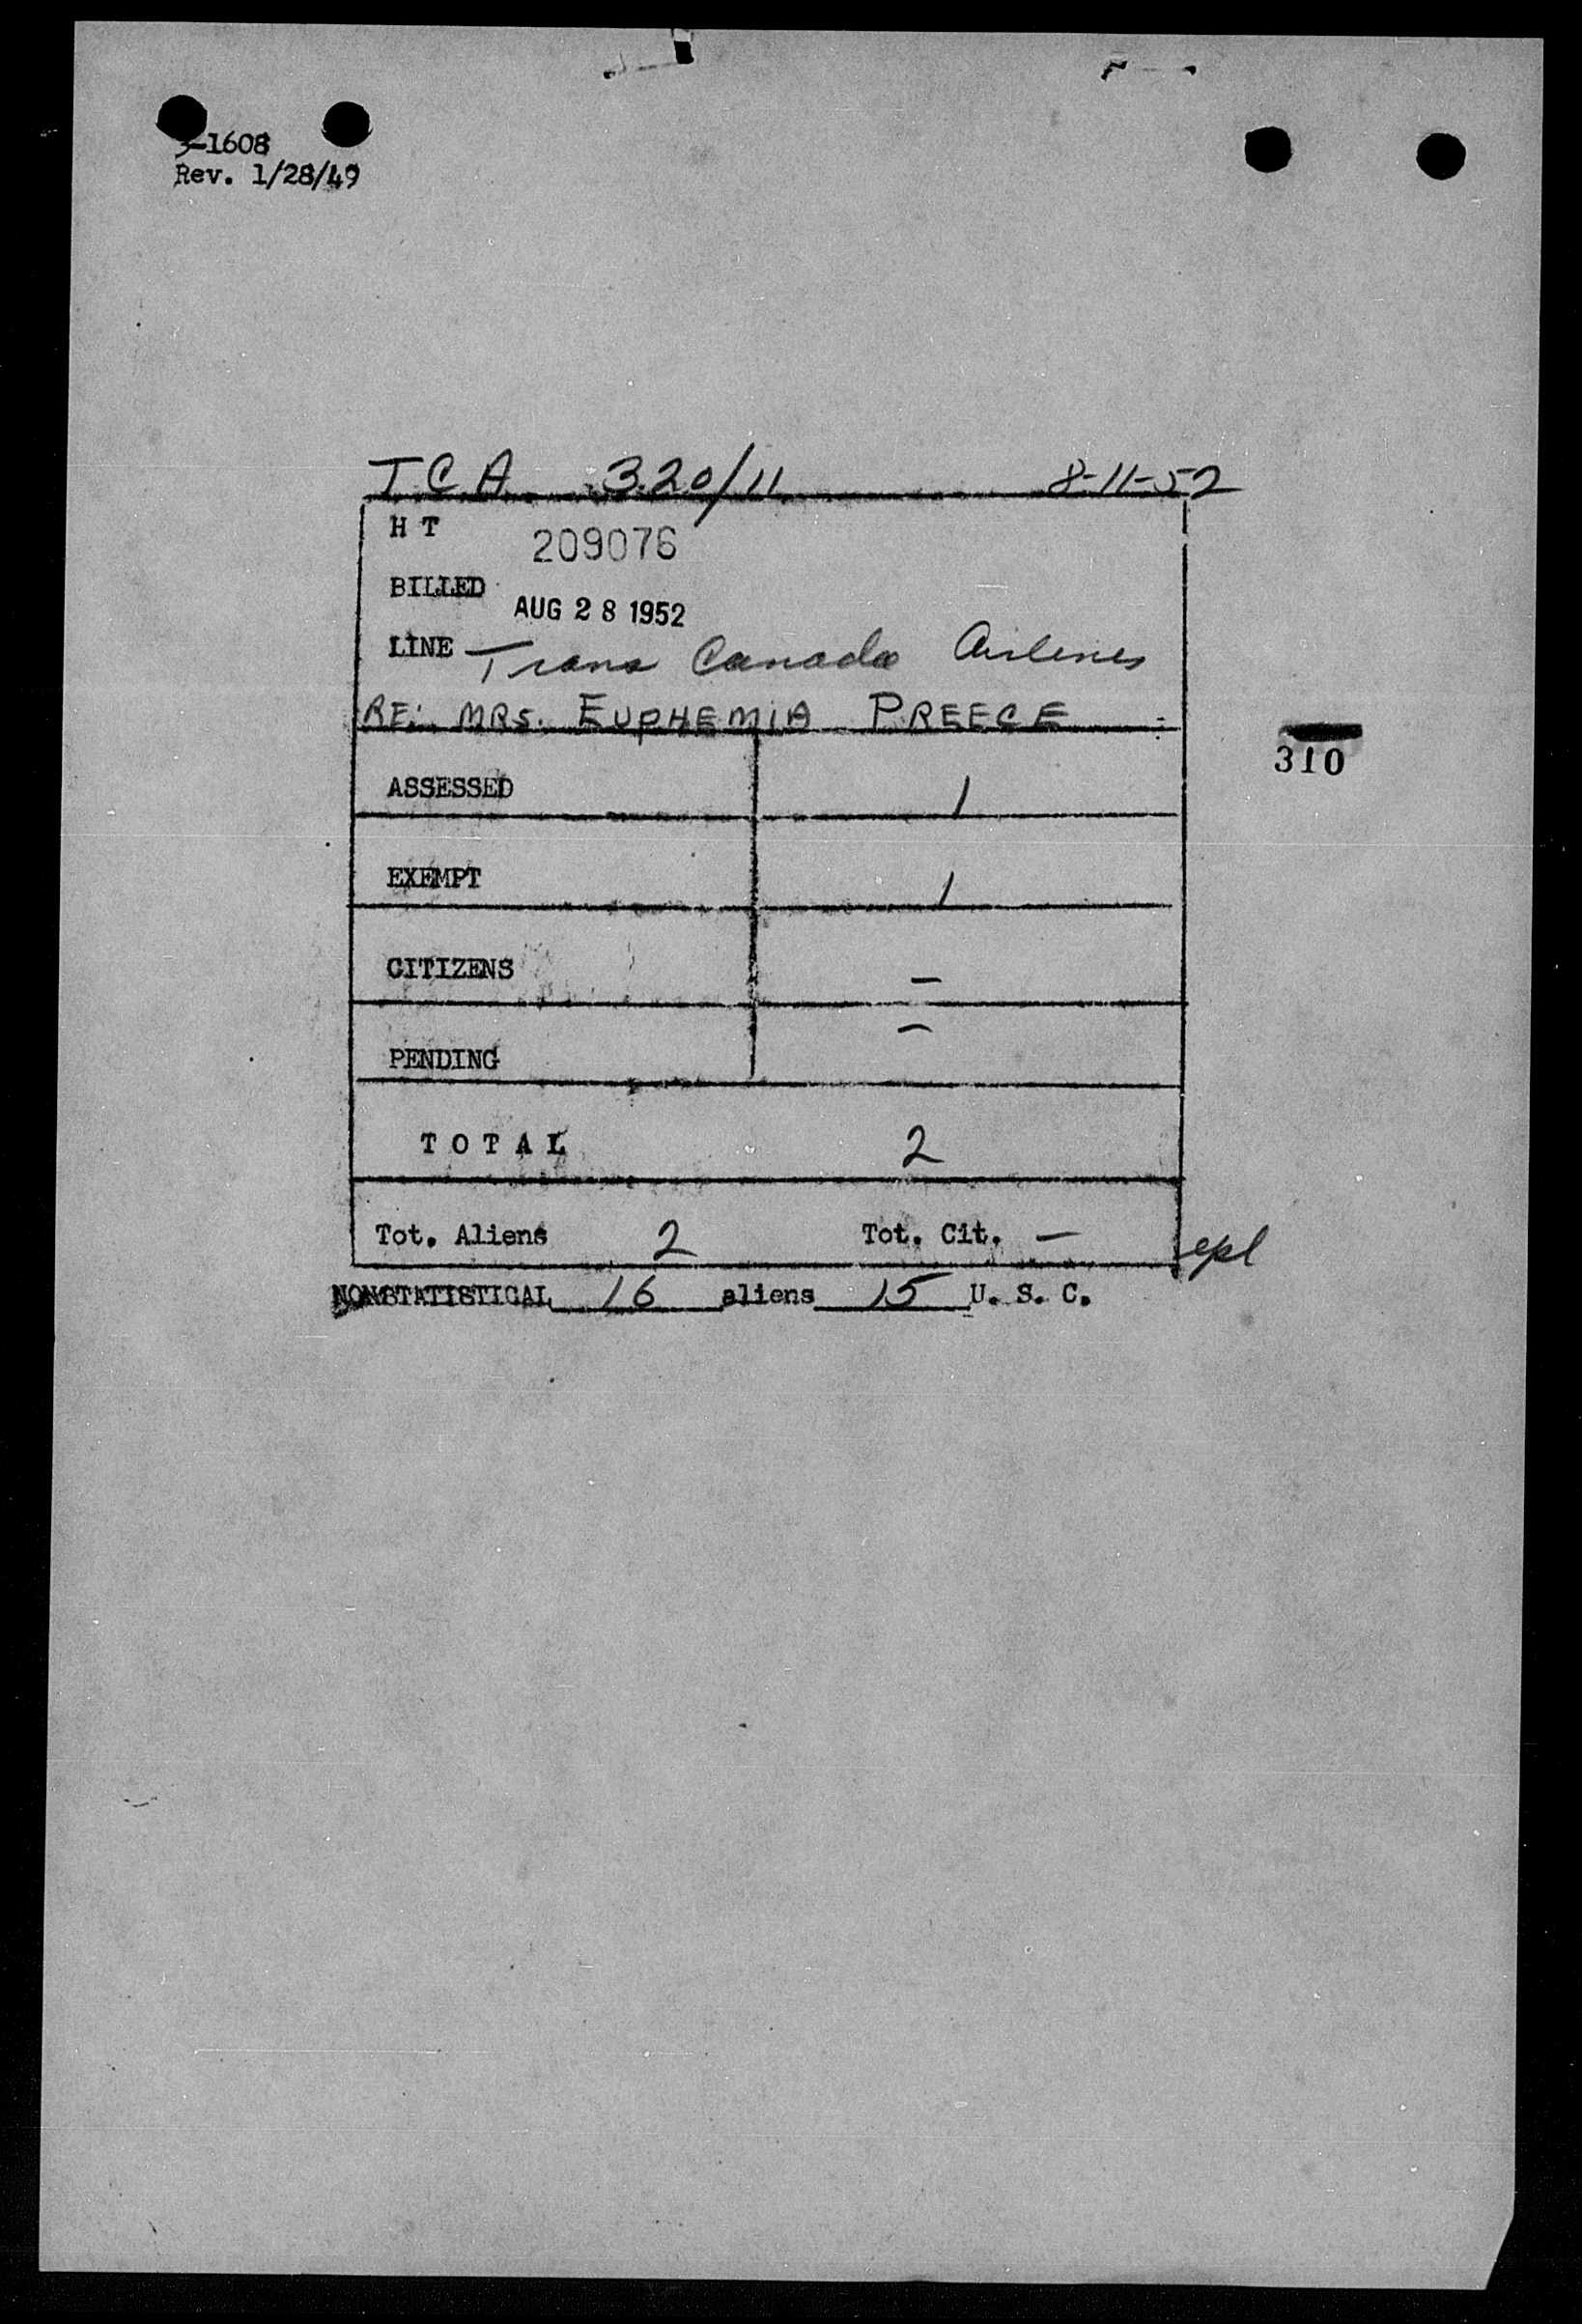 3-1608
Rev. 1/28/49
TCA 320/11 8-11-52
H T 209076
BILLED AUG 28 1952
LINE Trans Canada Airlines
RE: MRS. EUPHEMIA PREECE
310
ASSESSED 1
EXEMPT 1
CITIZENS –
PENDING –
TOTAL 2
Tot. Aliens 2 Tot. Cit. – epl
NONSTATISTICAL 16 aliens 15 U. S. C.